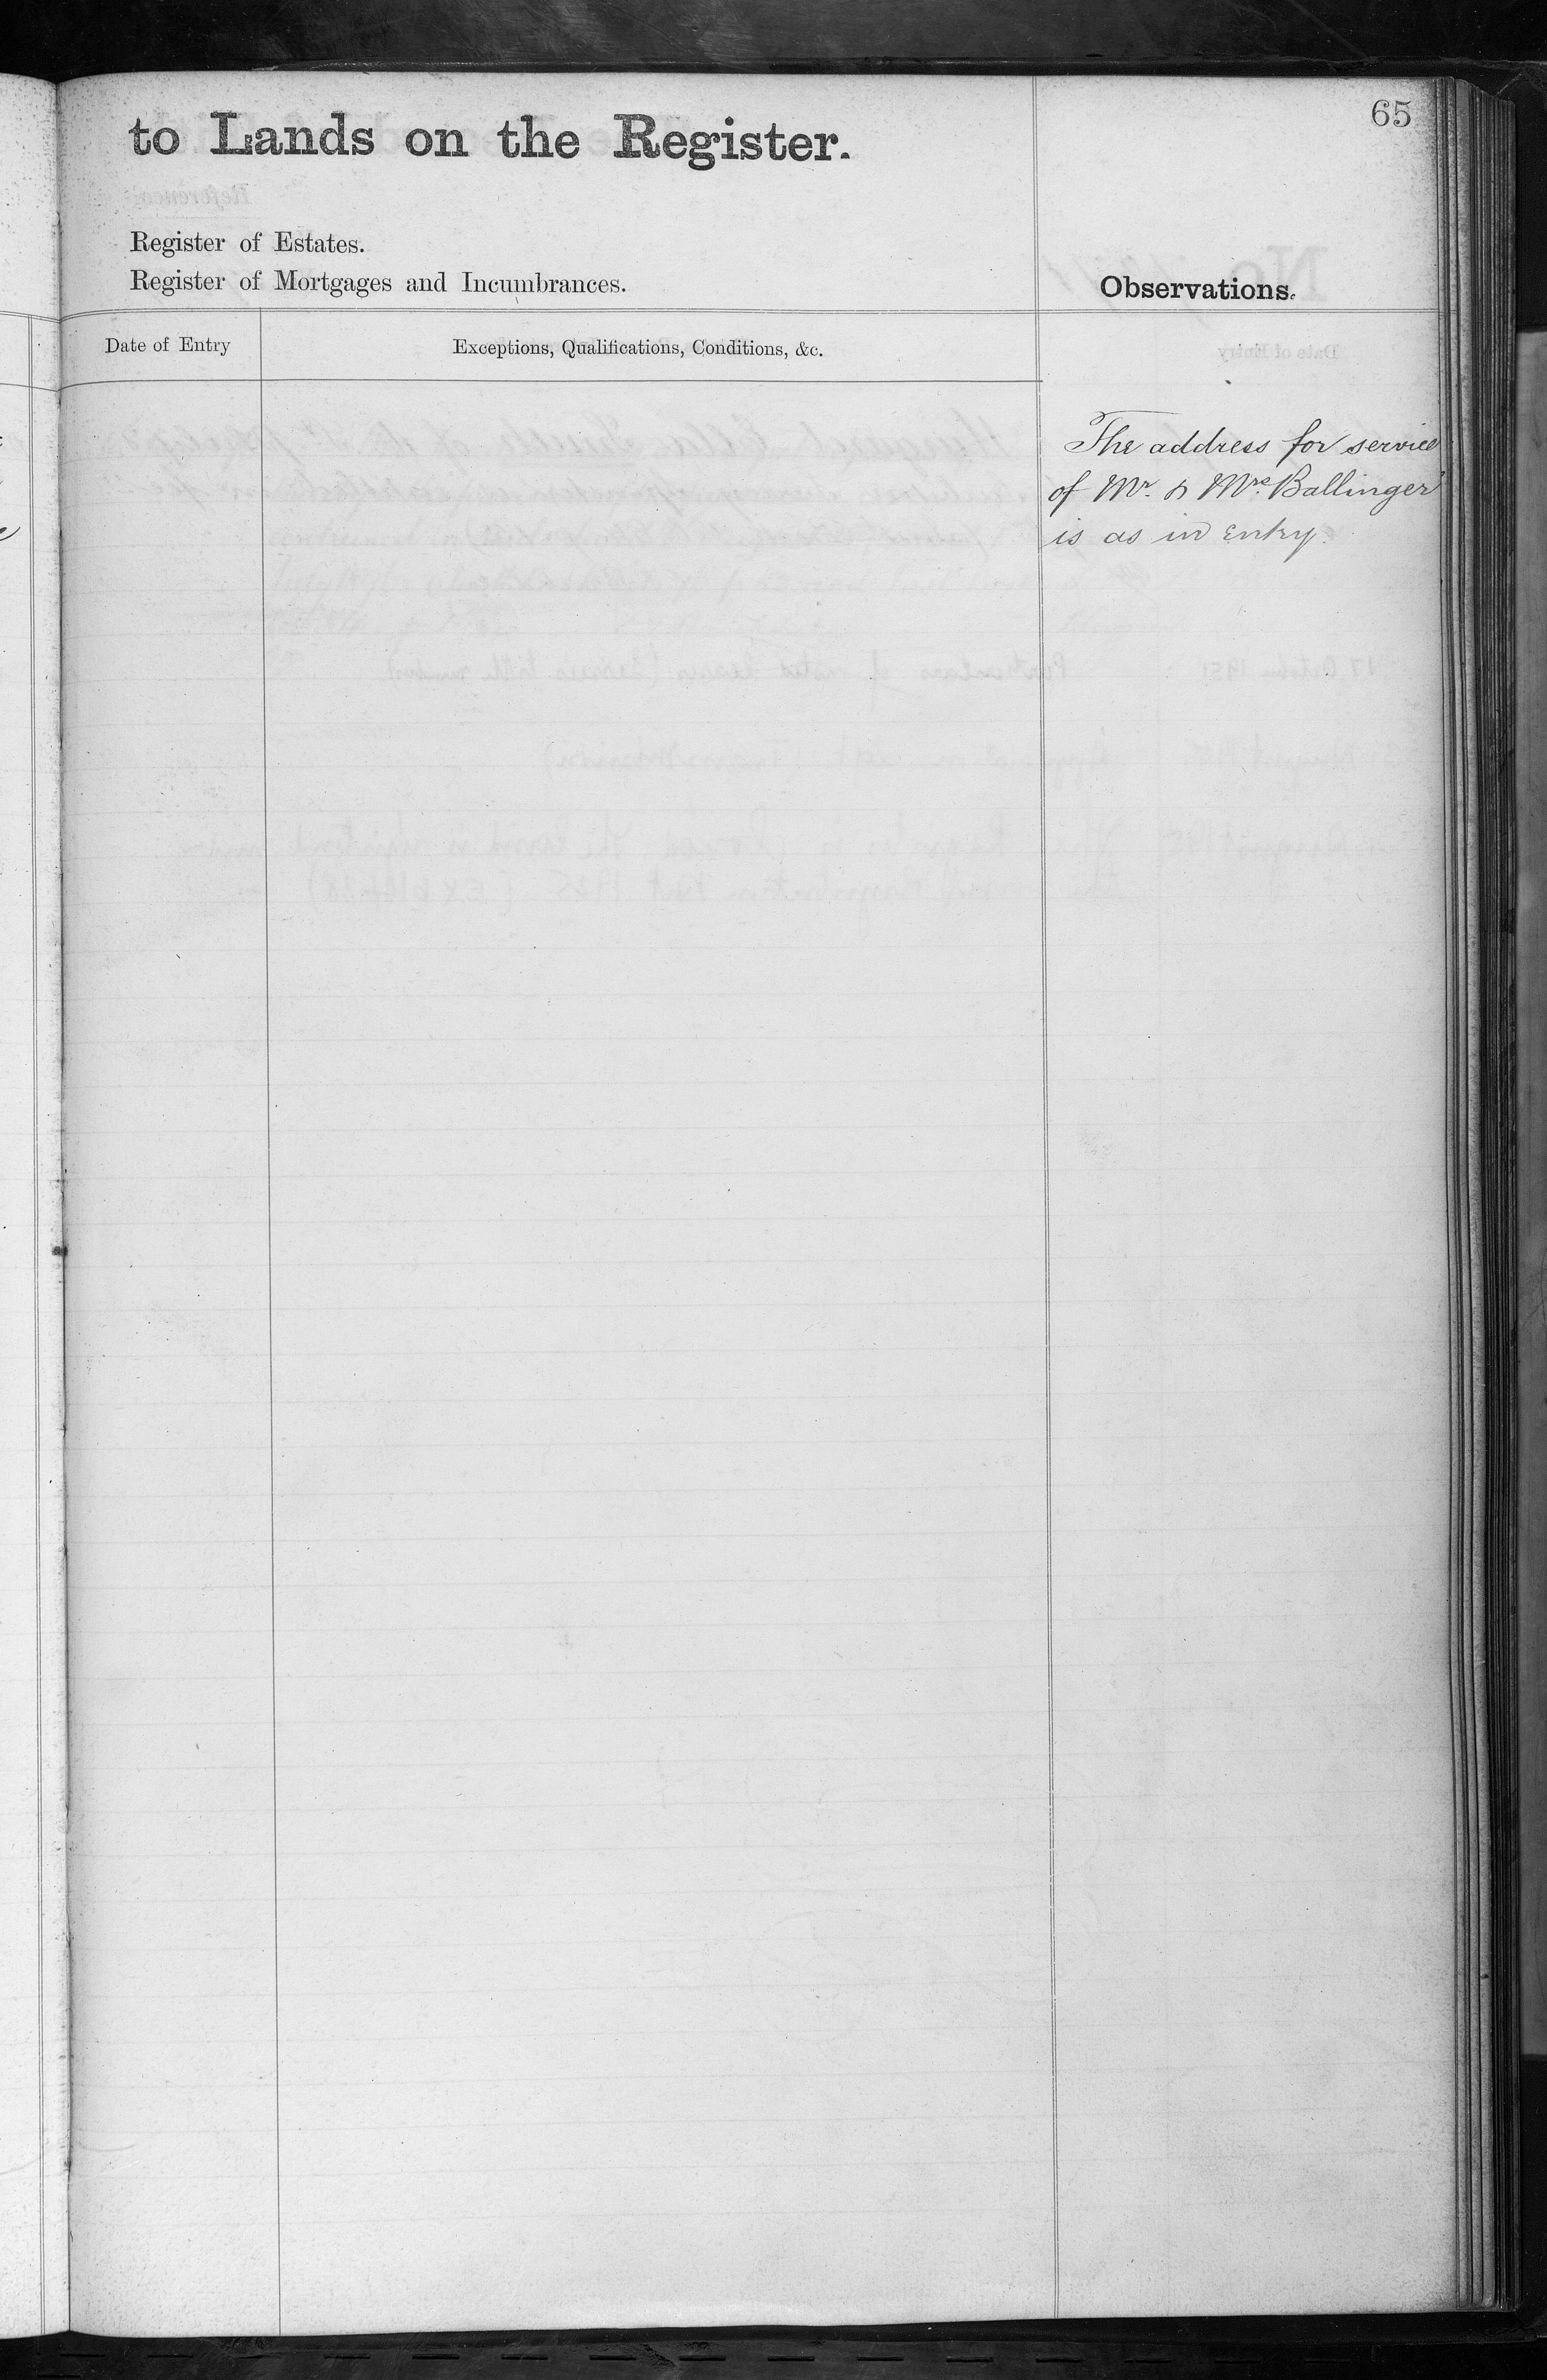 65
to Lands on the Register.
Register of Estates.
Register of Mortgages and Incumbrances.
Observations.
Date of Entry
Exceptions, Qualifications, Conditions, &c.
The address for service
of Mr. & Mrs. Ballinger
is as in entry.